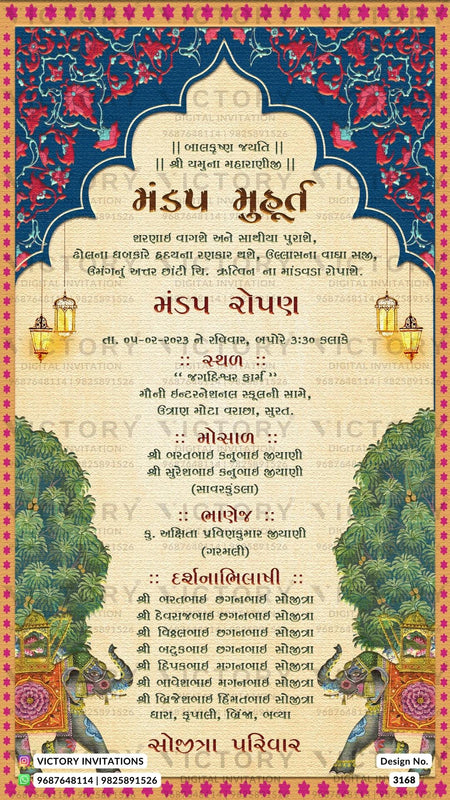 || બાલકૃષ્ણ જયતિ ||
|| શ્રી યમુના મહારાણીજી ||
મંડપ મુહૂર્ત
શરણાઇ વાગશે અને સાથીયા પુરાશે,
ઢોલના ધબકારે હૃદયના રણકાર થશે, ઉલ્લાસના વાઘા સજી,
ઉમંગનું અત્તર છાંટી ચિ. ઋત્વિન ના માંડવડા રોપાશે.
મંડપ રોપણ
તા. ૦૫-૦૨-૨૦૨૩ ને રવિવાર, બપોરે ૩:૩૦ કલાકે
:: સ્થળ ::
“ જગદિશ્વર ફાર્મ ”
મૌની ઇન્ટરનેશનલ સ્કૂલની સામે,
ઉત્રાણ મોટા વરાછા, સુરત.
:: મોસાળ ::
શ્રી ભરતભાઇ કનુભાઇ જીયાણી
શ્રી સુરેશભાઇ કનુભાઇ જીયાણી
(સાવરકુંડલા)
:: ભાણેજ ::
કુ. અક્ષિતા પ્રવિણકુમાર જીયાણી
(ગરમલી)
:: દર્શનાભિલાષી ::
શ્રી ભરતભાઇ છગનભાઇ સોજીત્રા
શ્રી દેવરાજભાઇ છગનભાઇ સોજીત્રા
શ્રી વિઠ્ઠલભાઇ છગનભાઇ સોજીત્રા
શ્રી બટુકભાઇ છગનભાઇ સોજીત્રા
શ્રી દિપકભાઇ મગનભાઇ સોજીત્રા
શ્રી ભાવેશભાઇ મગનભાઇ સોજીત્રા
શ્રી બ્રિજેશભાઇ હિંમતભાઇ સોજીત્રા
ધારા, કૃપાલી, બ્રિંજા, ભવ્યા
સોજીત્રા પરિવાર
VICTORY INVITATIONS
9687648114 | 9825891526
Design No.
3168
VICTORY
DIGITAL INVITATION
9687648114 | 9825891526